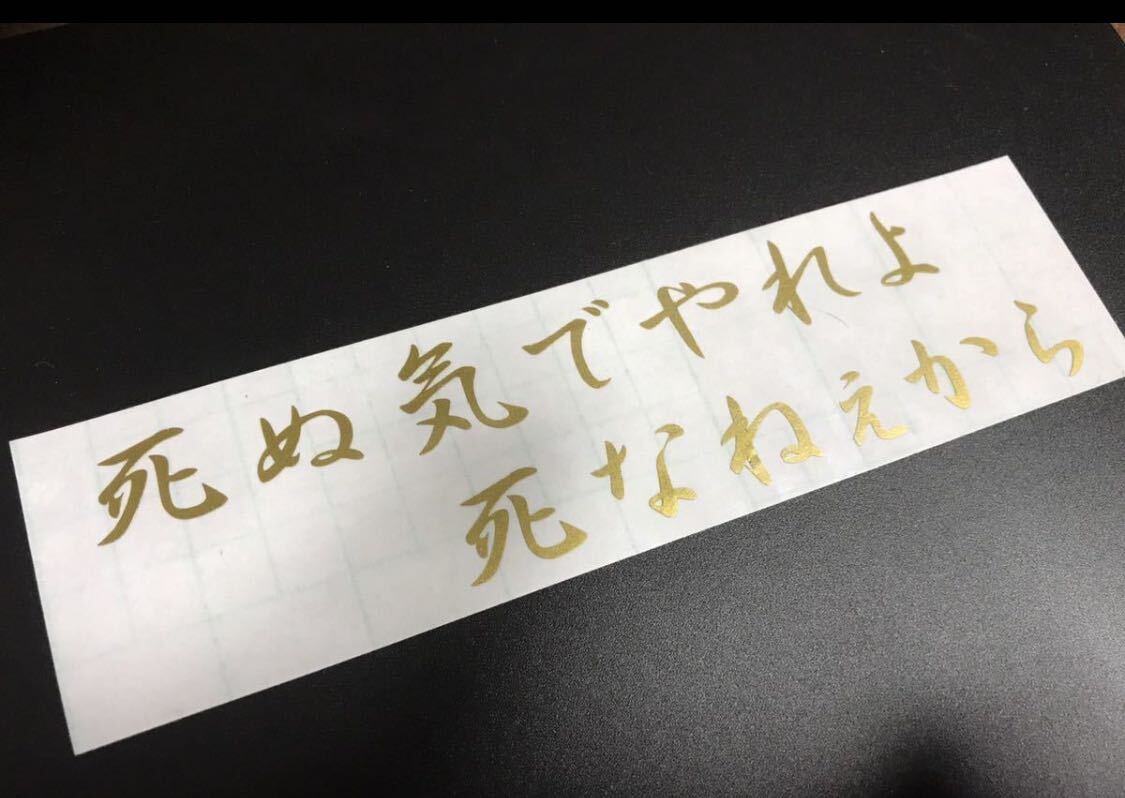 死ぬ気でやれよ
死なねえから